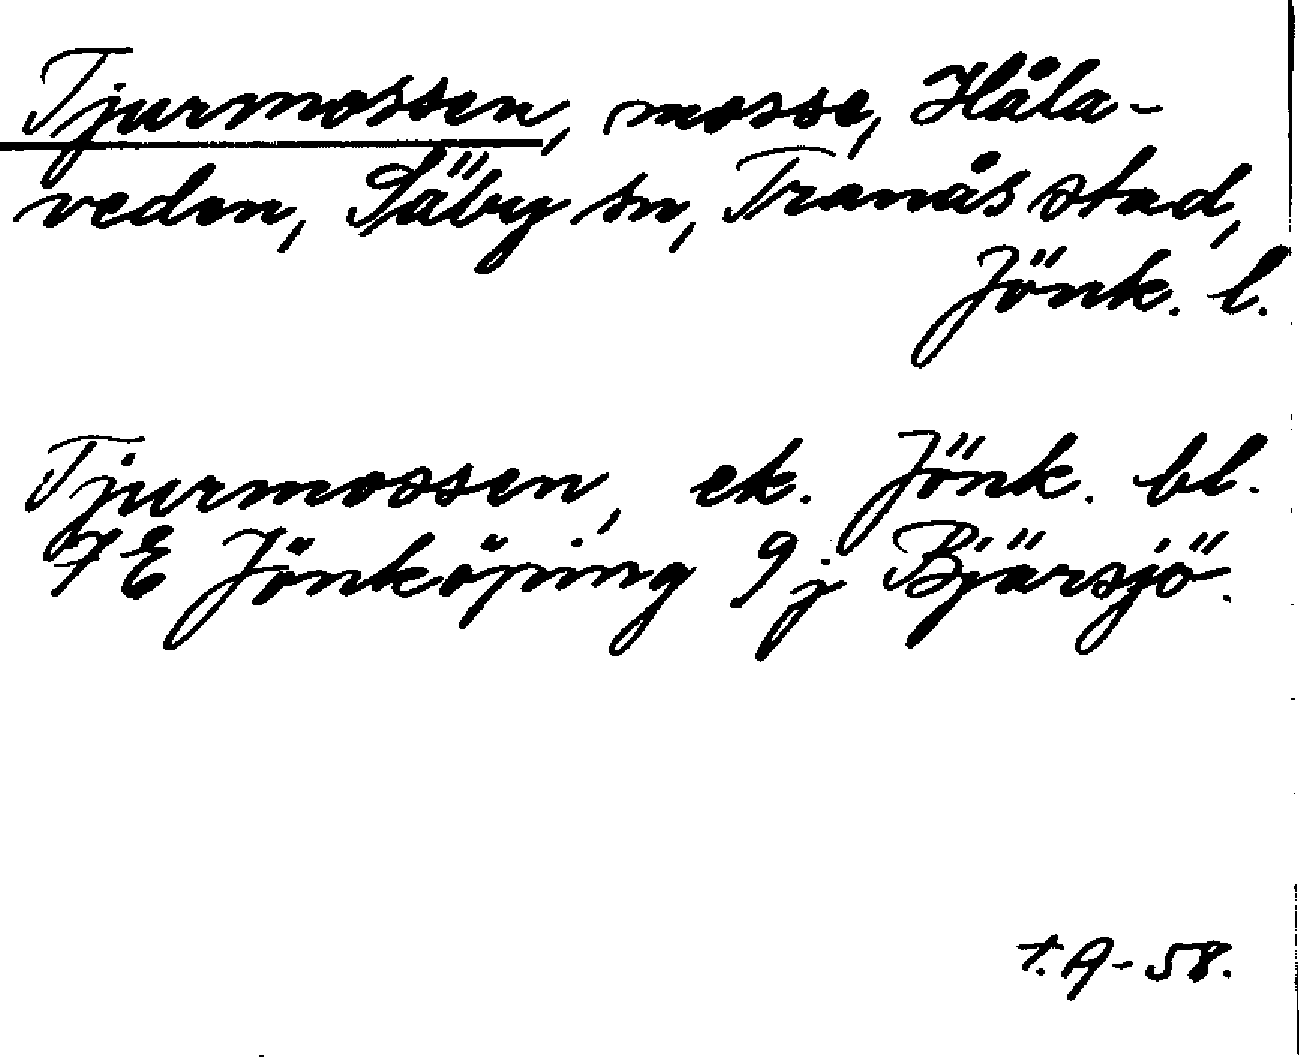 Tjurmossen, mosse, Håla-
veden, Säby sn, Tranås stad,
Jönk. l.
Tjurmossen, ek. Jönk. bl.
7E Jönköping 9j Bjärsjö.
58.